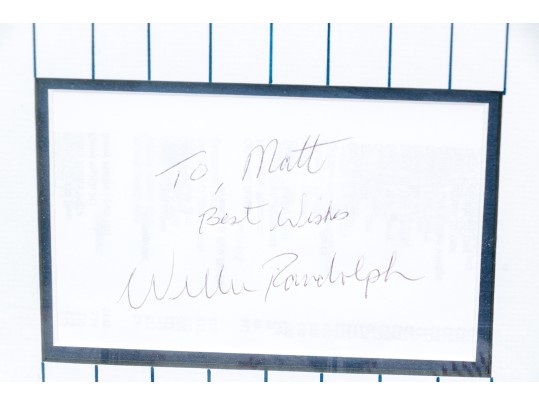 To, Matt
Best Wishes
Willie Randolph